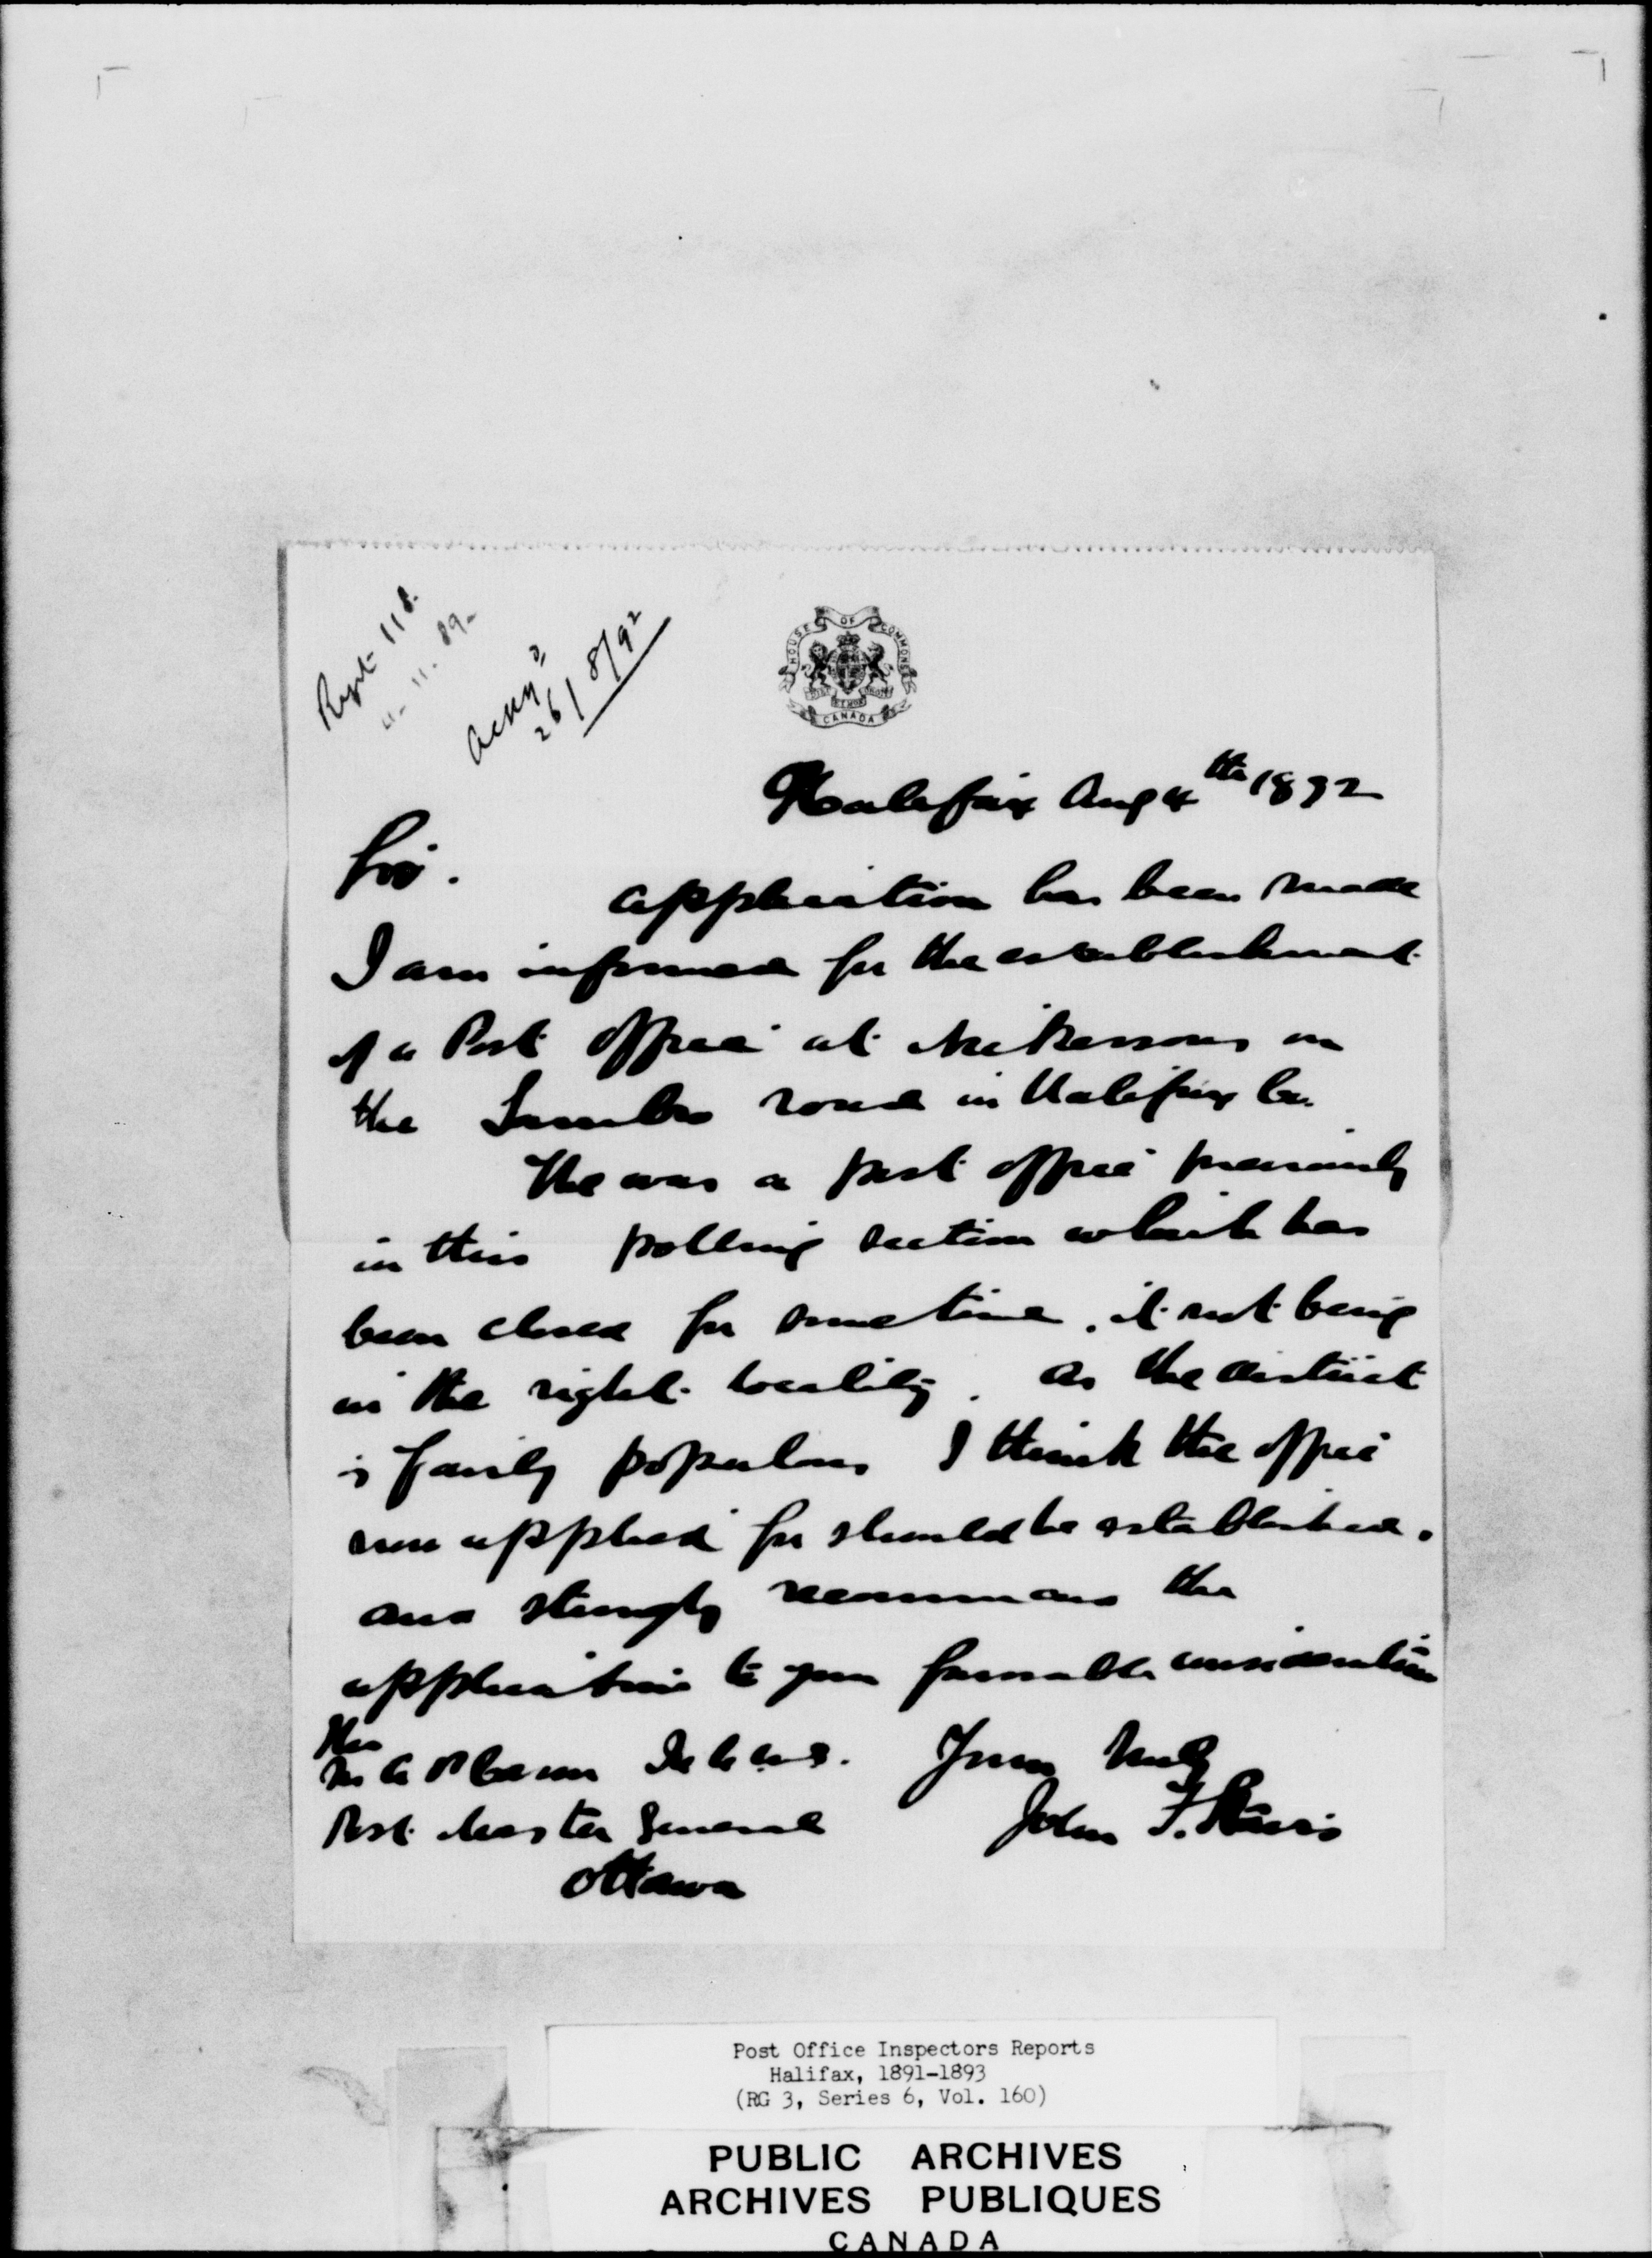 Rept 118.
" 11. 89-
Ackd
26/8/92
HOUSE OF COMMONS
CANADA
Halifax Aug 4th 1892
Sir.
Application has been made
I am informed for the establishment
of a Post Office at Nickersons on
the Sambro road in Halifax Co.
The was a post office previously
in this polling section which has
been closed for some time, it not being
in the right locality. As the district
is fairly populous I think the office
now applied for should be established.
and strongly recommend the
application to your favorable consideration
Hon
Post Master General
Ottawa
Yours truly
John F. Stairs
Post Office Inspectors Reports
Halifax, 1891-1893
(RG 3, Series 6, Vol. 160)
PUBLIC ARCHIVES
ARCHIVES PUBLIQUES
CANADA